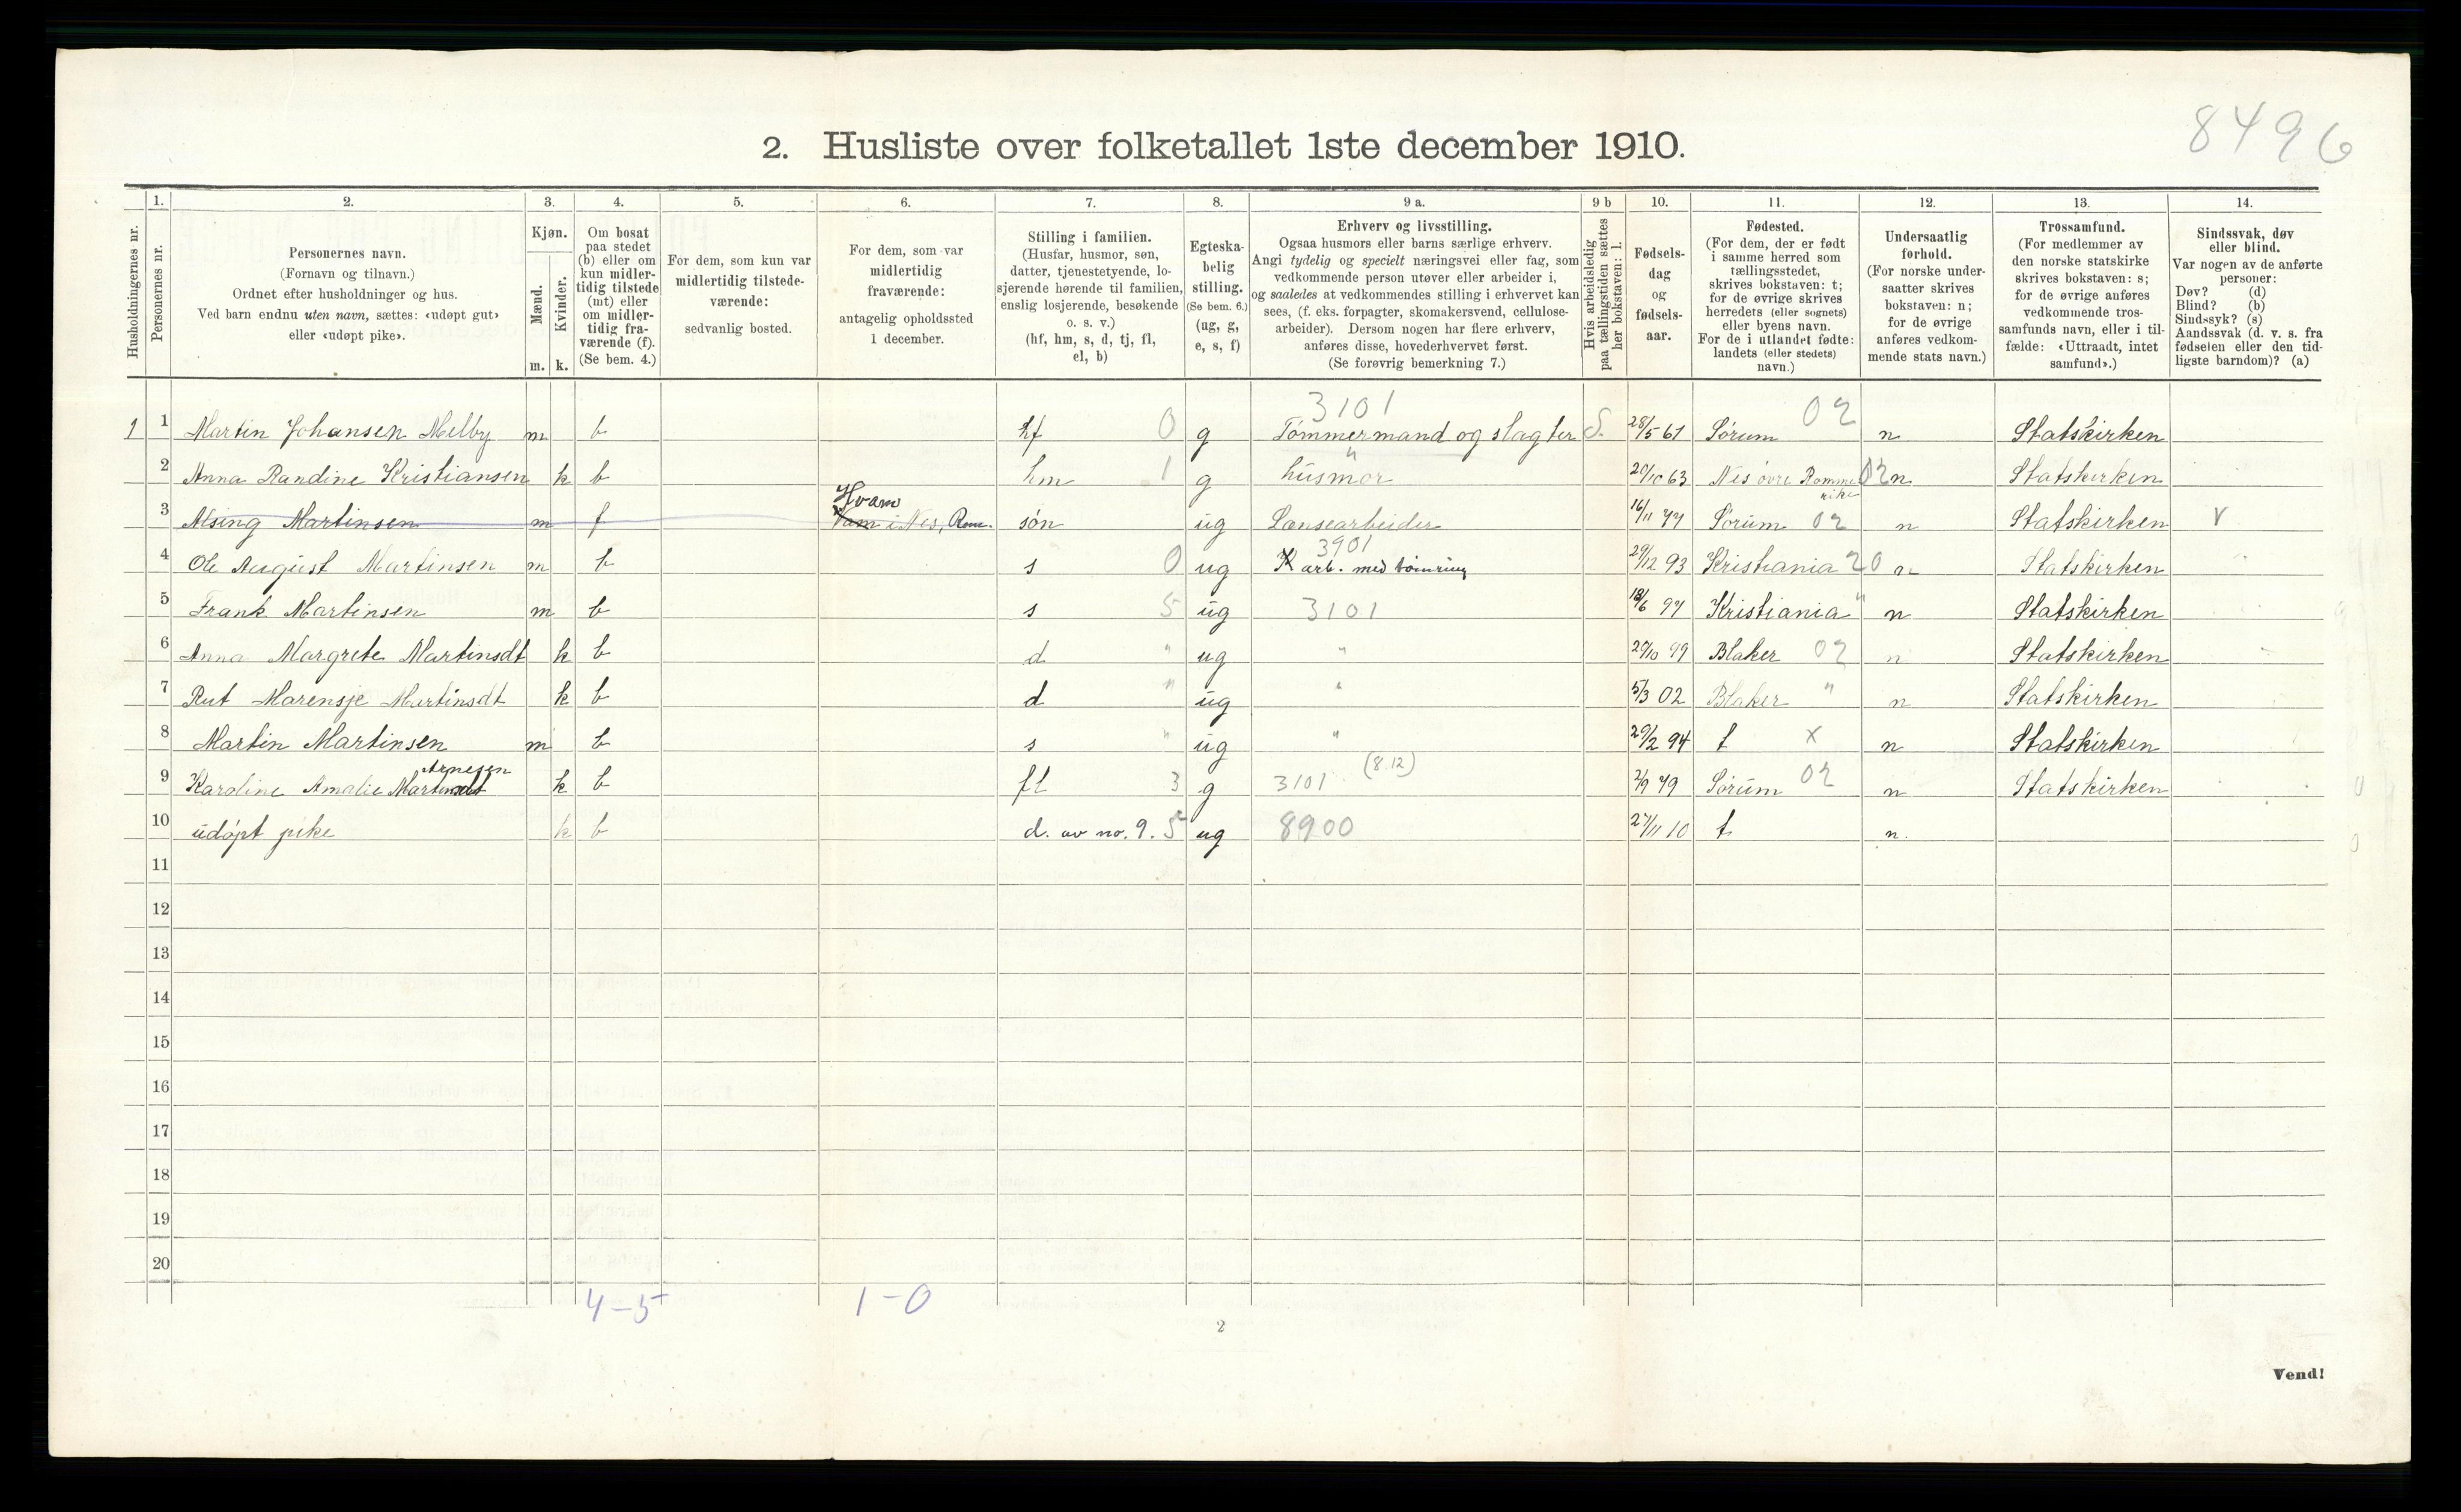 8496
2. Husliste over folketallet 1ste december 1910.
Husholdningernes nr.
1.
Personernes nr.
2.
Personernes navn.
(Fornavn og tilnavn.)
Ordnet efter husholdninger og hus.
Ved barn endnu uten navn, sættes: «udøpt gut»
eller «udøpt pike».
3.
Kjøn.
Mænd.
Kvinder.
m. k.
4.
Om bosat
paa stedet
(b) eller om
kun midler-
tidig tilstede
(mt) eller
om midler-
tidig fra-
værende (f).
(Se bem. 4.)
5.
For dem, som kun var
midlertidig tilstede-
værende:
sedvanlig bosted.
6.
For dem, som var
midlertidig
fraværende:
antagelig opholdssted
1 december.
7.
Stilling i familien.
(Husfar, husmor, søn,
datter, tjenestetyende, lo-
sjerende hørende til familien,
enslig losjerende, besøkende
o. s. v.)
(hf, hm, s, d, tj, fl,
el, b)
8.
Egteska-
belig
stilling.
(Se bem. 6.)
(ug, g,
e, s, f)
9 a.
Erhverv og livsstilling.
Ogsaa husmors eller barns særlige erhverv.
Angi tydelig og specielt næringsvei eller fag, som
vedkommende person utøver eller arbeider i,
og saaledes at vedkommendes stilling i erhvervet kan
sees, (f. eks. forpagter, skomakersvend, cellulose-
arbeider). Dersom nogen har flere erhverv,
anføres disse, hovederhvervet først.
(Se forøvrig bemerkning 7.)
9 b
Hvis arbeidsledig
paa tællingstiden sættes
her bokstaven: l.
10.
Fødsels-
dag
og
fødsels-
aar.
11.
Fødested.
(For dem, der er født
i samme herred som
tællingsstedet,
skrives bokstaven: t;
for de øvrige skrives
herredets (eller sognets)
eller byens navn.
For de i utlandet fødte:
landets (eller stedets)
navn.)
12.
Undersaatlig
forhold.
(For norske under-
saatter skrives
bokstaven: n;
for de øvrige
anføres vedkom-
mende stats navn.)
13.
Trossamfund.
(For medlemmer av
den norske statskirke
skrives bokstaven: s;
for de øvrige anføres
vedkommende tros-
samfunds navn, eller i til-
fælde: «Uttraadt, intet
samfund».)
14.
Sindssvak, døv
eller blind.
Var nogen av de anførte
personer:
Døv? (d)
Blind? (b)
Sindssyk? (s)
Aandssvak (d. v. s. fra
fødselen eller den tid-
ligste barndom)? (a)
3101 02
1 1 Martin Johansen Melby m b hf 0 g Tømmermand og slagter S. 28/5 61 Sørum n Statskirken
2 Anna Randine Kristiansen k b hm 1 g " husmor 20/10 63 Nes øvre Romme 02 n Statskirken
Hvam rike
3 Martinsen m f i Nes, Rom. søn ug Lænsearbeider 16/11 Sørum 02 n Statskirken V
3901
4 Ole August Martinsen m b s 0 ug arb. med tømring 29/12 93 Kristiania 20 n Statskirken
5 Frank Martinsen m b s 5 ug 3101 18/6 97 Kristiania " n Statskirken
6 Anna Margrete Martinsdt k b d " ug " 29/10 99 Blaker 02 n Statskirken
7 Rut Marensje Martinsdt k b d " ug " 5/3 02 Blaker " n Statskirken
8 Martin Martinsen m b s " ug " 29/2 94 t x n Statskirken
Arnesen (8.12)
9 Karoline Amalie Martinsdt k b fl 3 g 3101 2/9 79 Sørum 02 n Statskirken
10 udøpt pike k b d. av no. 9. 5 ug 8900 27/11 10 t n.
11
12
13
14
15
16
17
18
19
20
4-5 1-0
2
Vend!